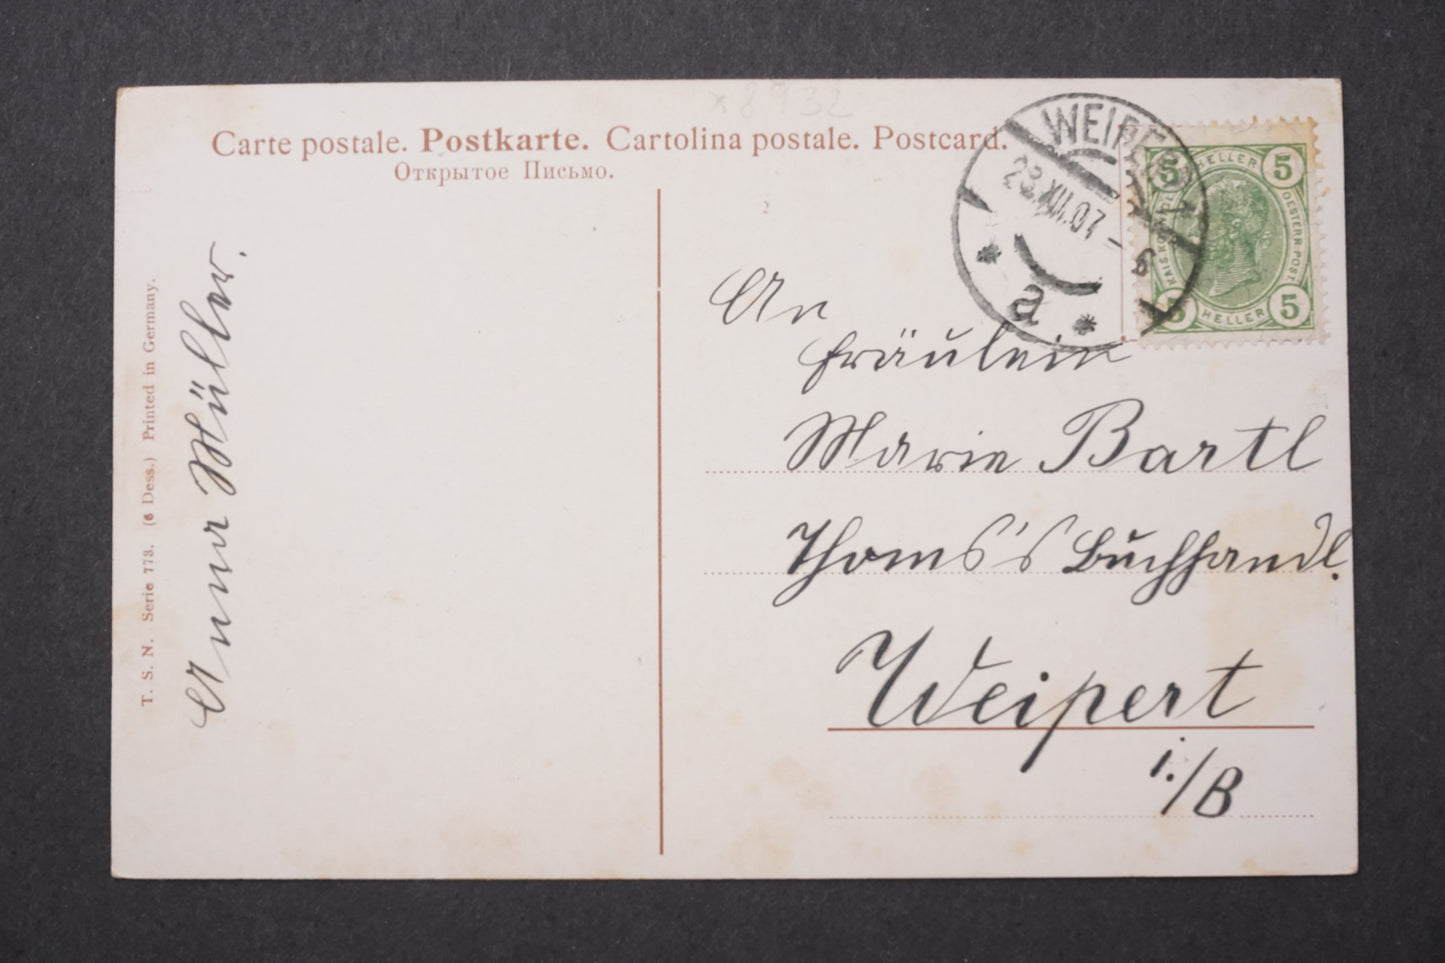 x 8932
Carte postale. Postkarte. Cartolina postale. Postcard.
Открытое Письмо.
WEIPERT
23.XII.07
a
5 HELLER 5
KAIS. KÖNIGL. OESTERR. POST
5 HELLER 5
An
Fräulein
Marie Bartl
Thoms's Buchhandl.
Weipert
i./B
Erna Müller.
T. S. N. Serie 773. (6 Dess.) Printed in Germany.